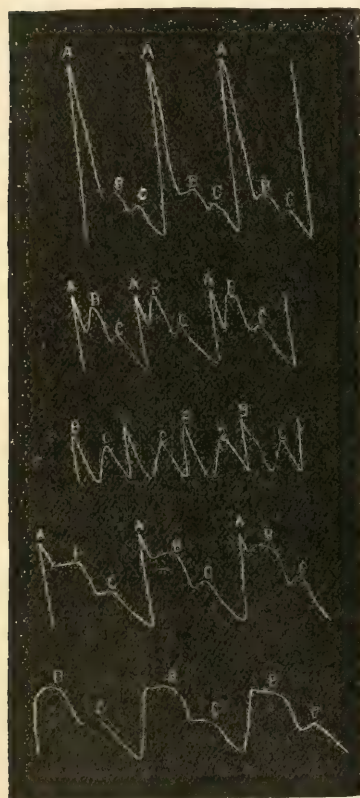 A A A
B C B C B C
A B A B A B
C C C
B C C B C B C
A A A
B B
C C C
B B B
C C C